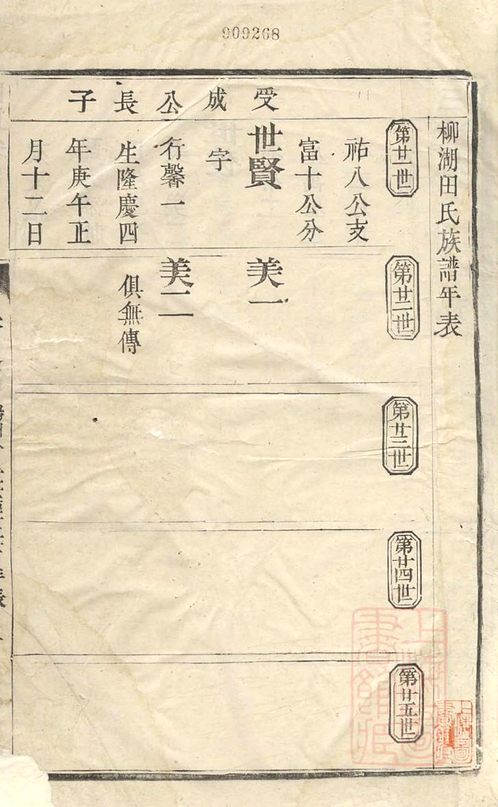 909268
柳湖田氏族譜年表
第廿一世
祐八公支
富十公分
受成公長子
世賢
字
行馨一
生隆慶四
年庚午正
月十二日
第廿二世
美一
美二
俱無傳
第廿三世
第廿四世
第廿五世